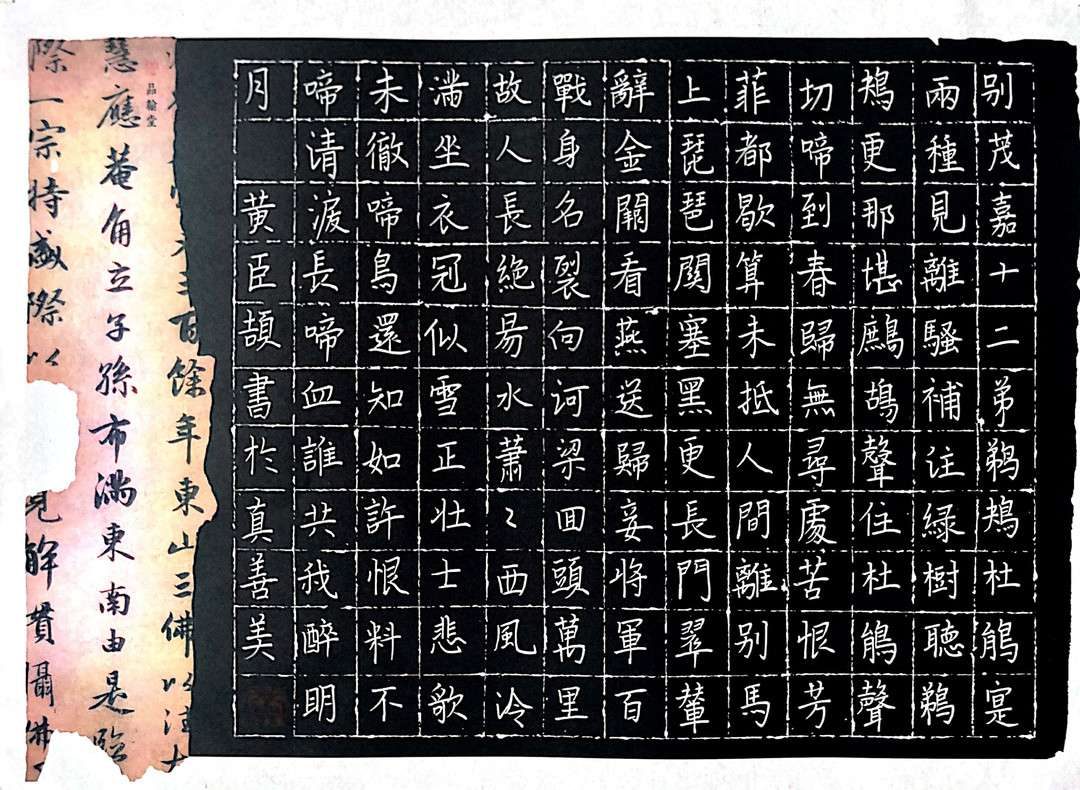 别茂嘉十二弟鵜鴂杜鵑寔
兩種見離騷補注緑樹聽鵜
鴂更那堪鷓鴣聲住杜鵑聲
切啼到春歸無尋處苦恨芳
菲都歇算未抵人間離别馬
上琵琶關塞黑更長門翠輦
辭金闕看燕送歸妾將軍百
戰身名裂向河梁回頭萬里
故人長絶易水蕭〻西風冷
滿坐衣冠似雪正壯士悲歌
未徹啼鳥還知如許恨料不
啼清淚長啼血誰共我醉明
月 黃臣頡書於真善美
品翰堂
百餘年東山三佛以法
慧應菴角立子孫布滿東南由是臨
際一宗特盛際以 見解貫攝佛